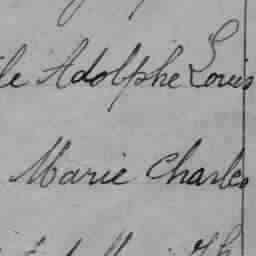 le Adolphe Louis
Marie Charles